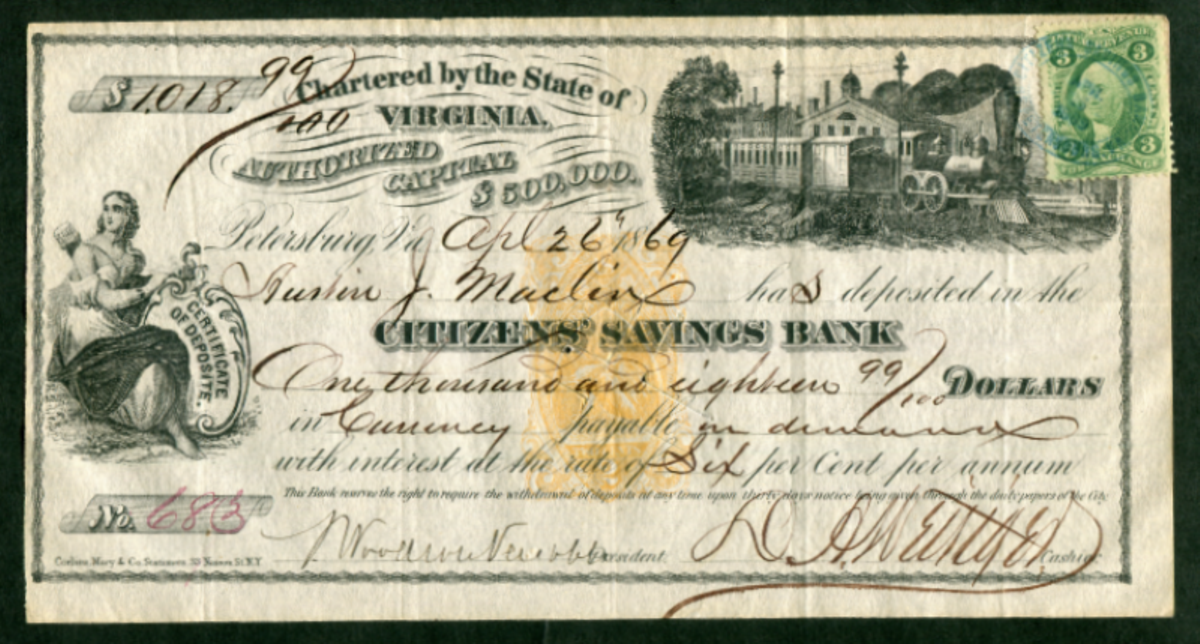 $ 1,018. 99/100
Chartered by the State of
VIRGINIA.
AUTHORIZED
CAPITAL
$500,000.
3 3
3 3
Petersburg, Va Apl 26th 1869
J. Maclin has deposited in the
CERTIFICATE
OF DEPOSITE.
CITIZENS' SAVINGS BANK
One thousand and eighteen 99/100 DOLLARS
in Currency payable on demand
with interest at the rate of Six per Cent per annum
This Bank reserves the right to require the withdrawal of deposits at any time upon thirty days notice being given through the daily papers of the City
No. 683
President
Cashier